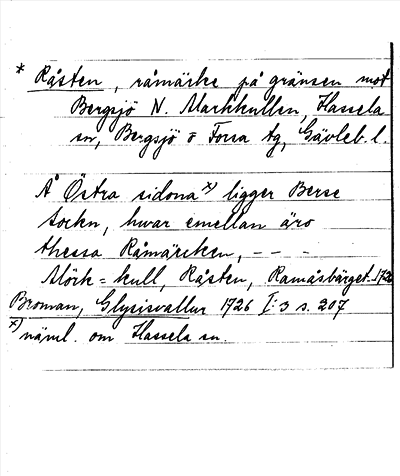 * Råsten, råmärke på gränsen mot
Bergsjö N. Markkullen, Hassela
sn, Bergsjö o Forsa tg, Gävleb. l.
Å Östra sidona x) ligger Berse
sockn, hwar emellan äro
thessa Råmärcken, - - -
Mörk=kull, Råsten, Ramåsbärget.
Broman, Glysisvallur 1726 I:3 s. 207
x) näml. om Hassela sn.